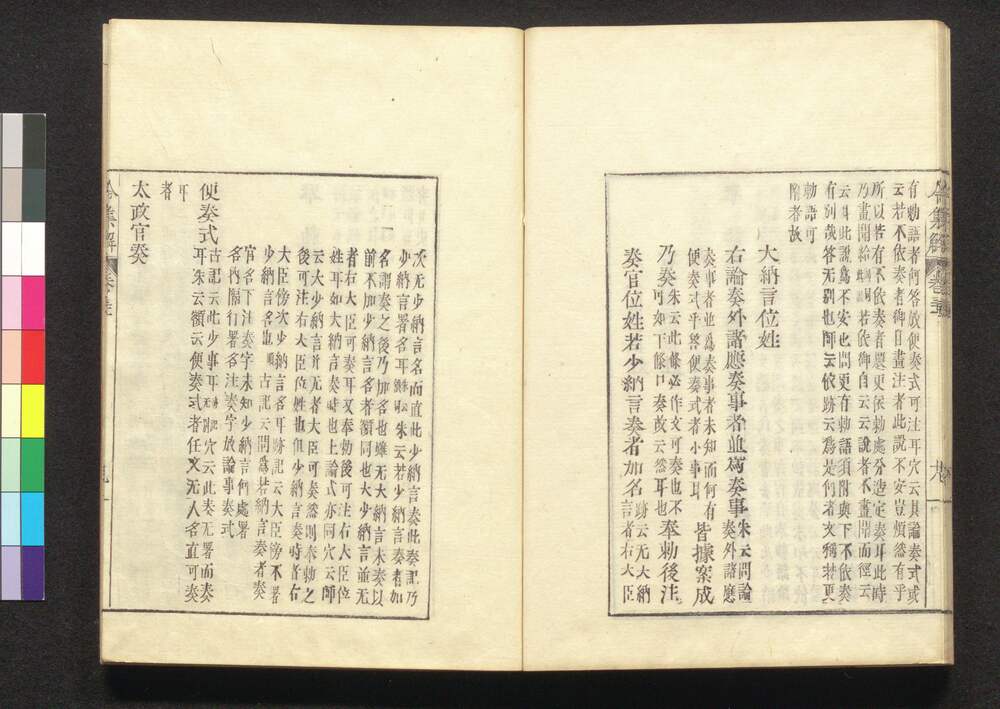 有勅語者何答放便奏式可注耳穴云其論奏式或
云若不依奏者御日畫注者此説不安豈煩然有乎
所以若有不依奏者還更依勅處分造定奏耳此時
乃畫聞給
云其此説爲不安也問更有勅語須附與下不依奏
有別哉答无別也師云依跡云爲是何者文稱若更
勅語可
附者故
大納言位姓
右論奏外諸應奏事者並爲奏事朱云問論
奏外諸應
奏事者並爲奏事者未知而何有
便奏式乎答便奏式者小事耳
皆據案成
乃奏朱云此條必作文可奏也不
可如下條口奏故云然耳也
奉勅後注
奏官位姓若少納言奏者加名跡云无大納
言者右大臣
次无少納言名而直此少納言奏此奏記乃
少納言署名耳
朱云若少納言奏者加
名謂奏之後乃加名也雖无大納言未奏以
前不加少納言名者額同也大少納言並无
者右大臣可奏耳又奉勅後可注右大臣位
姓耳如大納言奏時也上論式亦同穴云師
云大少納言並无者大臣可奏然則奏勅之
後可注右大臣位姓也但少納言奏時者右
大臣傍次少納言名耳跡記云大臣傍不署
少納言名也
古記云問爲若納言奏者奏
官名下注奏字未知少納言何處署
名答隨行署名注奏字放論事奏式
便奏式古記云此少事耳
穴云此奏无署而奏
耳朱云額云便奏式者任文无人名直可奏
耳
者
太政官奏
令集解